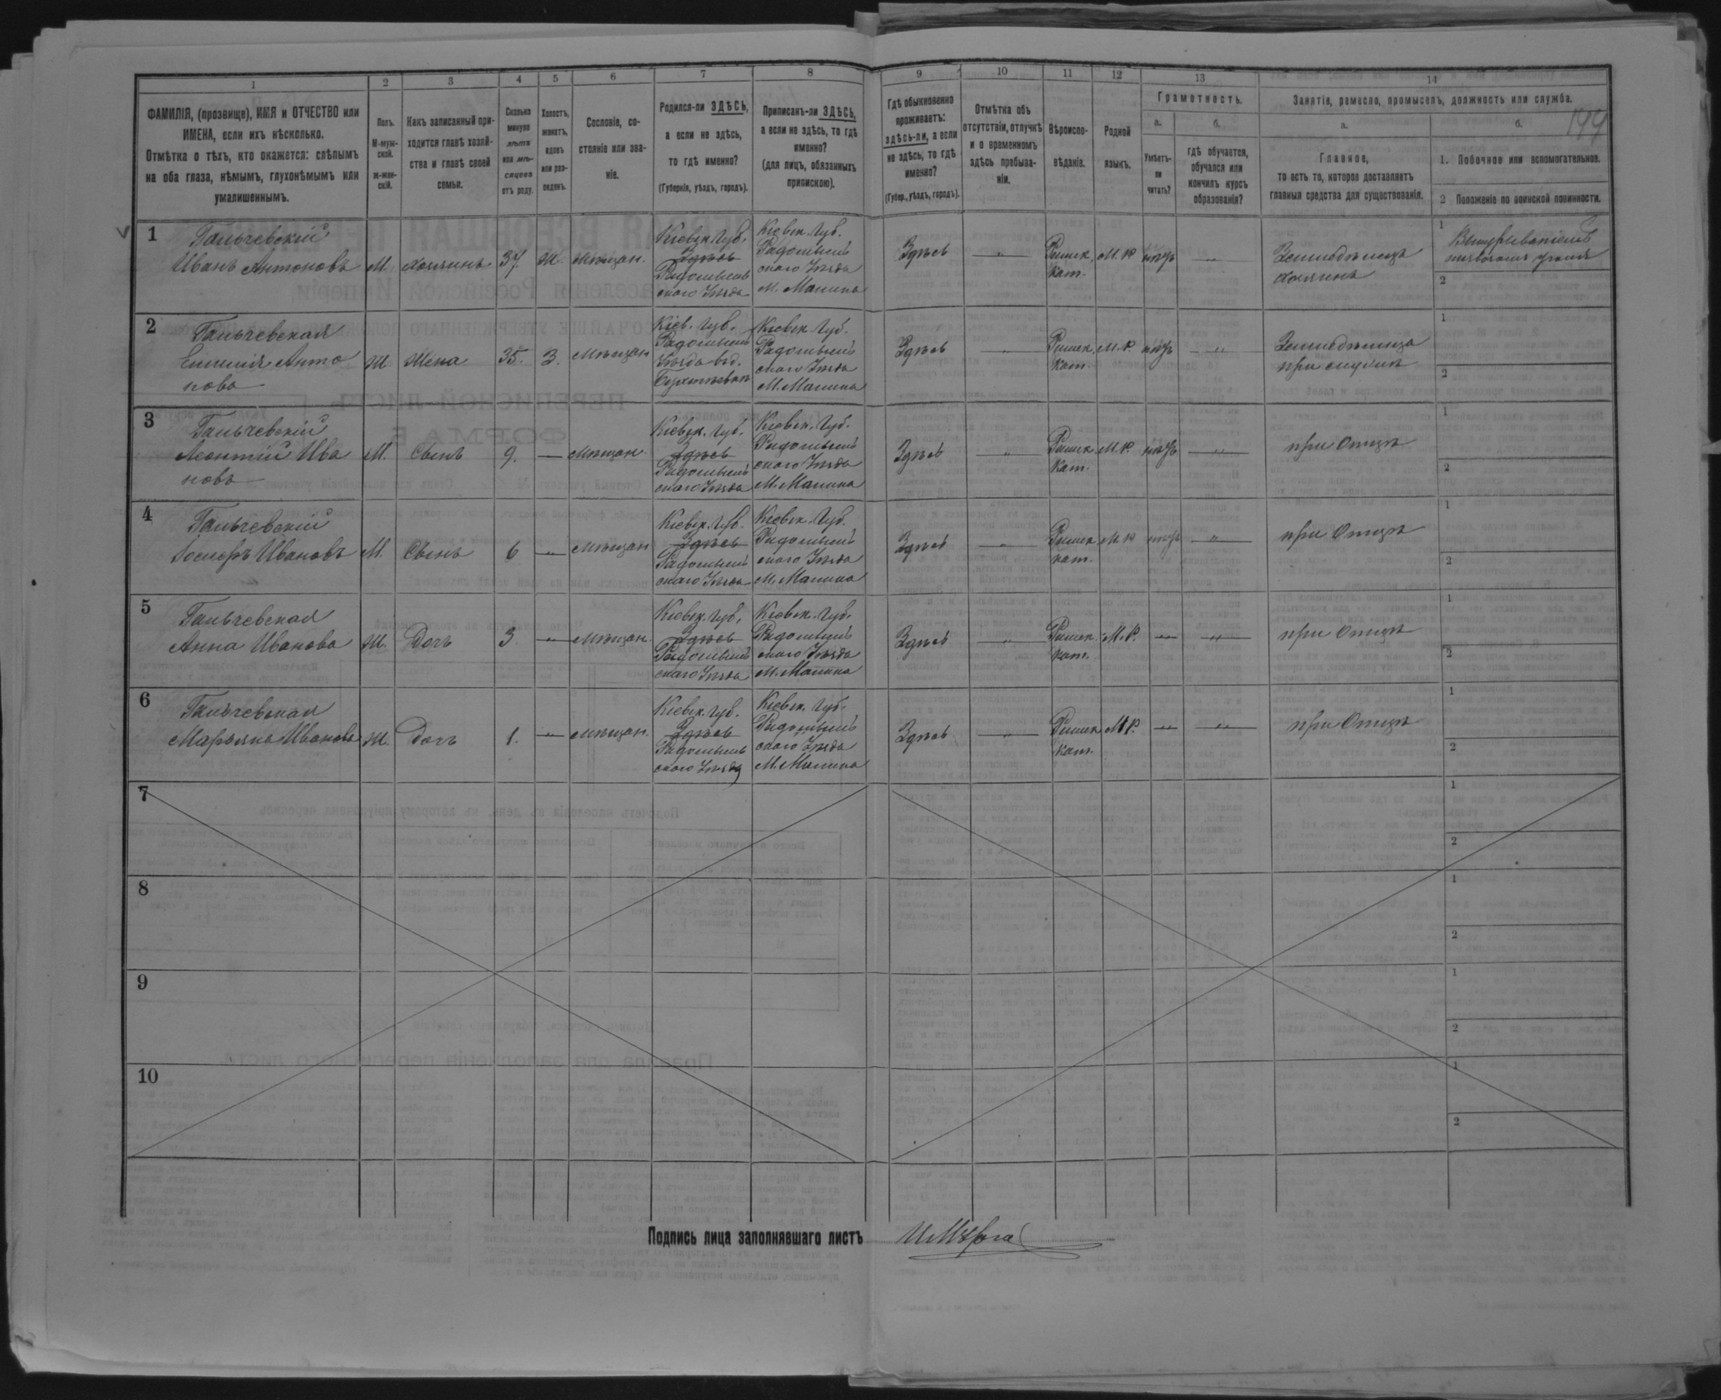 1 2 3 4 5 6 7 8 9 10 11 12 13 14
ФАМИЛІЯ, (прозвище), ИМЯ и ОТЧЕСТВО или
ИМЕНА, если ихъ нѣсколько.
Отмѣтка о тѣхъ, кто окажется: слѣпымъ
на оба глаза, нѣмымъ, глухонѣмымъ или
умалишеннымъ.
Полъ.
М-мужской.
Ж-женскій.
Какъ записанный при-
ходится главѣ хозяй-
ства и главѣ своей
семьи.
Сколько
минуло
лѣтъ
или мѣ-
сяцевъ
отъ роду.
Холостъ,
женатъ,
вдовъ
или раз-
веденъ.
Сословіе, со-
стояніе или зва-
ніе.
Родился-ли ЗДѢСЬ,
а если не здѣсь,
то гдѣ именно?
(Губернія, уѣздъ, городъ).
Приписанъ-ли ЗДѢСЬ,
а если не здѣсь, то гдѣ
именно?
(для лицъ, обязанныхъ
припискою).
Гдѣ обыкновенно
проживаетъ:
здѣсь-ли, а если
не здѣсь, то гдѣ
именно?
(Губер., уѣздъ, городъ).
Отмѣтка объ
отсутствіи, отлучкѣ
и о временномъ
здѣсь пребыва-
ніи.
Вѣроиспо-
вѣданіе.
Родной
языкъ.
Грамотность.
а.
Умѣетъ-
ли
читать?
б.
гдѣ обучается,
обучался или
кончилъ курсъ
образованія?
Занятіе, ремесло, промыселъ, должность или служба.
а.
Главное,
то есть то, которое доставляетъ
главныя средства для существованія.
б.
1. Побочное или вспомогательное.
2 Положеніе по воинской повинности.
1
Гальчевскій
Иванъ Антоновъ
М.
хозяинъ
37
Ж
мѣщан.
Кіевск. Губ.
Здѣсь
Радомысль
скаго Уѣзда
Кіевск. Губ.
Радомысль
скаго Уѣзда
М. Малина
Здѣсь
Римск.
кат.
М. Р.
нѣтъ
Земледѣлецъ
хозяинъ
1
2
2
Гальчевская
Анто
нова
Ж
Жена
35.
З.
мѣщан
Кіев. Губ.
Радомысль
Уѣзда
Кіевск. Губ.
Радомысль
скаго Уѣзда
М. Малина
Здѣсь
Римск.
кат.
М. Р.
нѣтъ
Земледѣлица
при мужѣ
1
2
3
Гальчевскій
Леонтій Ива
новъ
М.
Сынъ
9.
мѣщан.
Кіевск. Губ.
Здѣсь
Радомысль
скаго Уѣзда
Кіевск. Губ.
Радомысль
скаго Уѣзда
М. Малина
Здѣсь
Римск.
кат.
М. Р.
нѣтъ
при Отцѣ
1
2
4
Гальчевскій
Іосифъ Ивановъ
М.
Сынъ
6
мѣщан
Кіевск. Губ.
Здѣсь
Радомысль
скаго Уѣзда
Кіевск. Губ.
Радомысль
скаго Уѣзда
М. Малина
Здѣсь
Римск.
кат.
М. Р.
нѣтъ
при Отцѣ
1
2
5
Гальчевская
Анна Иванова
Ж.
Дочь
3
мѣщан.
Кіевск. Губ.
Здѣсь
Радомысль
скаго Уѣзда
Кіевск. Губ.
Радомысль
скаго Уѣзда
М. Малина
Здѣсь
Римск.
кат.
М. Р.
при Отцѣ
1
2
6
Гальчевская
Марьяна Иванова
Ж.
Дочь
1.
мѣщан.
Кіевск. Губ.
Здѣсь
Радомысль
скаго Уѣзда
Кіевск. Губ.
Радомысль
скаго Уѣзда
М. Малина
Здѣсь
Римск.
кат.
М. Р.
при Отцѣ
1
2
7
1
2
8
1
2
9
1
2
10
1
2
Подпись лица заполнявшаго листъ